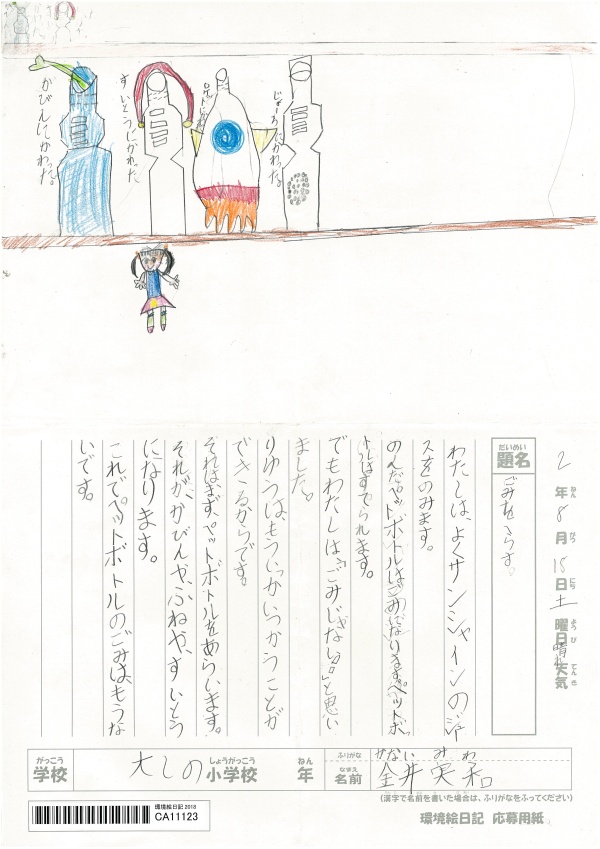 かびんにかわった。
すいとうにかわった
じょうろにかわった。
2年8月15日土曜日晴れ天気
ねん
がつ
にち
ようび
てんき
だいめい
題名
ごみをへらす。
わたしは、よくサンシャインのジュー
スをのみます。
のんだペットボトルはごみになります。ペットボ
トルはすてられます。
でもわたしは「ごみじゃない。」と思い
ました。
りゆうは、もういっかいつかうことが
できるからです。
それはまず、ペットボトルをあらいます。
それが、かびんや、ふねや、すいとう
になります。
これでペットボトルのごみは、もうな
いです。
がっこう
学校
大しの小学校
しょうがっこう
ねん
年
ふりがな
かない みわ
なまえ
名前
金井実和
(漢字で名前を書いた場合は、ふりがなをふってください)
環境絵日記 2018
CA11123
環境絵日記 応募用紙